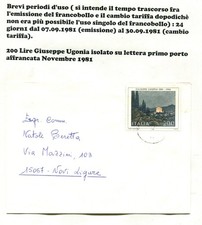 Brevi periodi d'uso ( si intende il tempo trascorso fra
l'emissione del francobollo e il cambio tariffa dopodichè
non era più possibile l'uso singolo del francobollo) : 24
giorni dal 07.09.1981 (emissione) al 30.09.1981 (cambio
tariffa).
200 Lire Giuseppe Ugonia isolato su lettera primo porto
affrancata Novembre 1981
ITALIA 200
Natale Beretta
Via Mazzini, 103
15067 - Novi Ligure